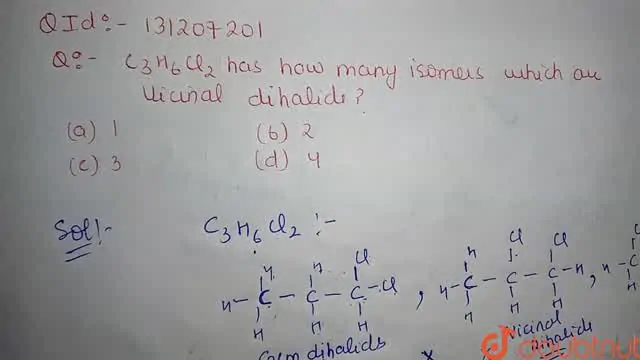 QId:- 131207201
Q:- C3H6Cl2 has how many isomers which are
Vicinal dihalide?
(a) 1 (b) 2
(c) 3 (d) 4
Sol:- C3H6Cl2 :-
H H Cl
H - C - C - C - Cl ,
H H H
Gem dihalids
H Cl Cl
H - C - C - C - H ,
H H H
Vicinal
Dihalide
doubtnut